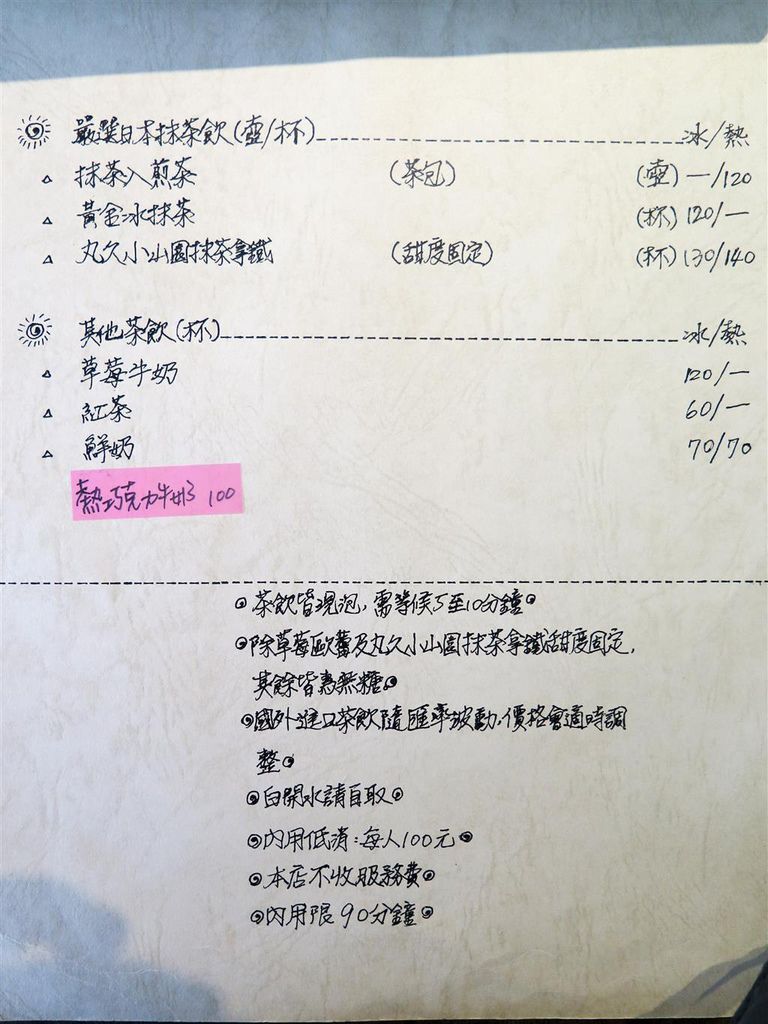 嚴選日本抹茶飲(壺/杯) 冰/熱
抹茶入煎茶 (茶包) (壺) 一/120
黃金冰抹茶 (杯) 120/一
丸久小山園抹茶拿鐵 (甜度固定) (杯) 130/140
其他茶飲(杯) 冰/熱
草莓牛奶 120/一
紅茶 60/一
鮮奶 70/70
熱巧克力牛奶 100
茶飲皆現泡,需等候5至10分鐘
除草莓歐蕾及丸久小山園抹茶拿鐵甜度固定,
其餘皆為無糖
國外進口茶飲隨匯率波動,價格會適時調
整
白開水請自取
內用低消:每人100元
本店不收服務費
內用限90分鐘